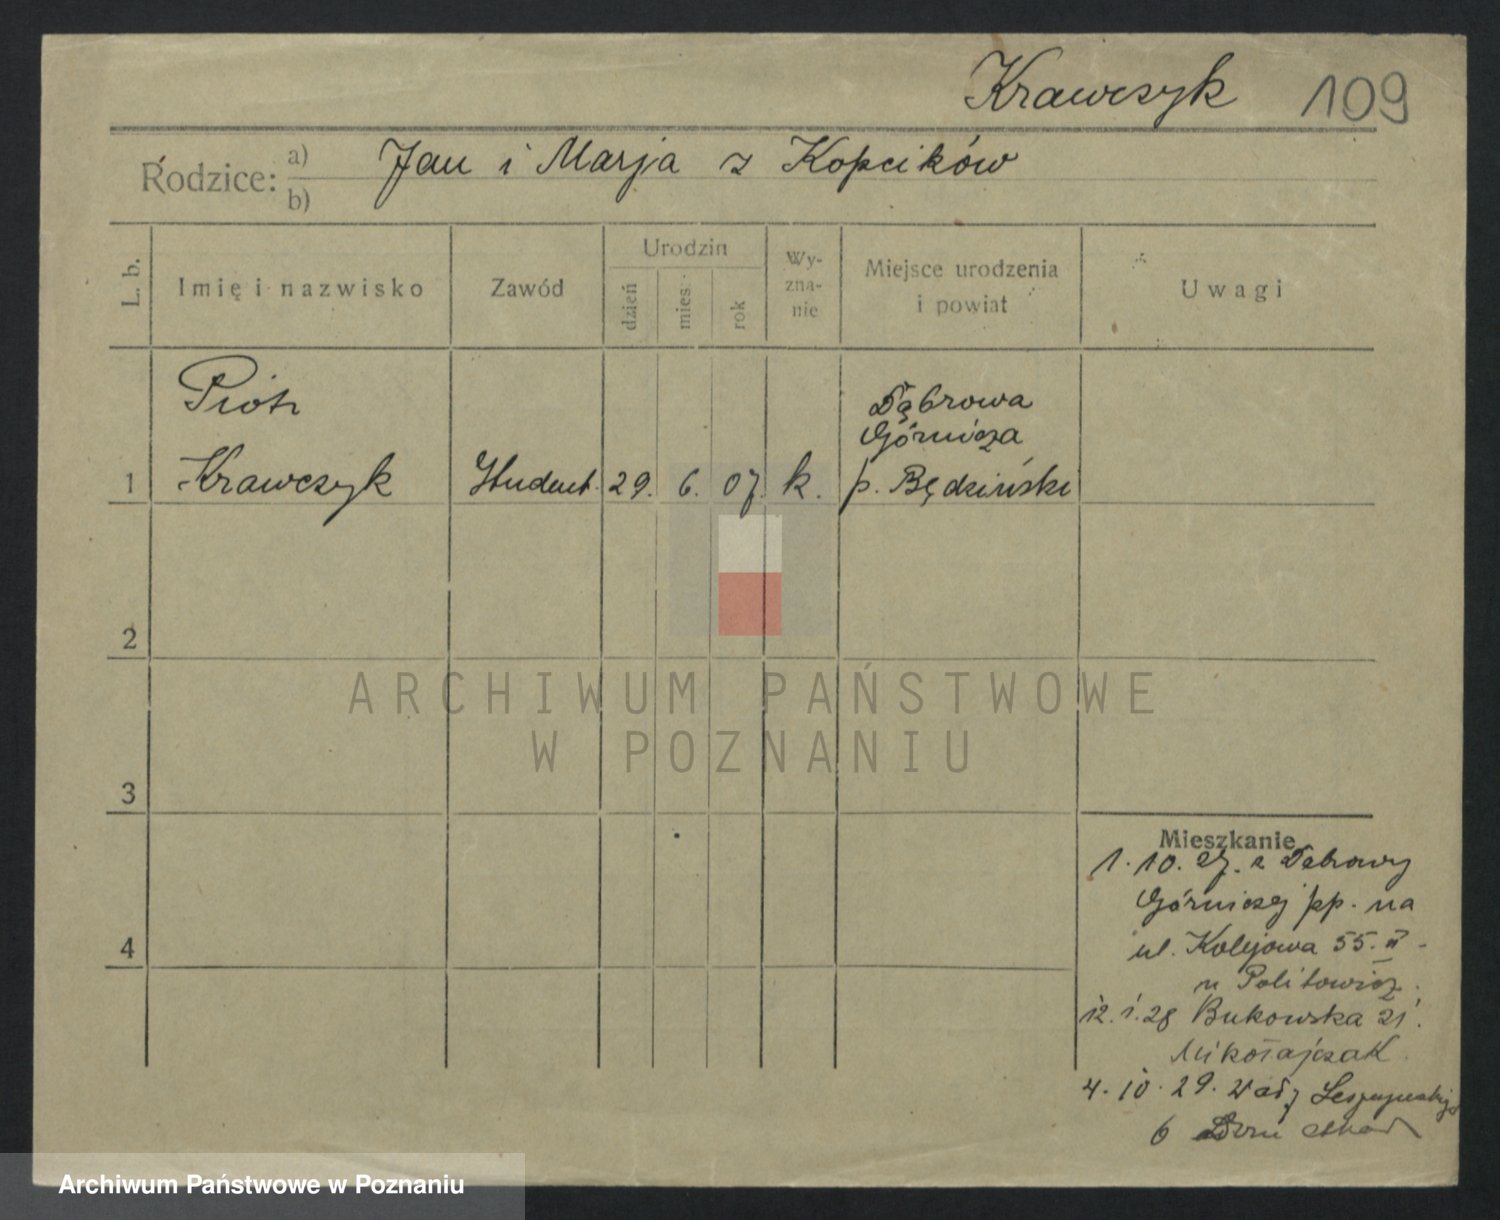 Krawczyk 109
Rodzice: a) b) Jan i Marja z Kopcików
L. b.
Imię i nazwisko
Zawód
Urodzin
dzień
mies.
rok
Wy-
zna-
nie
Miejsce urodzenia
i powiat
Uwagi
Piotr
Krawczyk
1
Student.
29. 6. 07.
k.
Dąbrowa
Górnicza
p. Będziński
2
3
4
ARCHIWUM PAŃSTWOWE
W POZNANIU
Mieszkanie
1. 10. 27. z Dąbrowy
Górniczej pp. na
ul. Kolejowa 55. II
u Politowicz.
12. 1. 28 Bukowska 21.
Mikołajczak.
4. 10. 29. Wały Leszczyńskiego
6 Dom
Archiwum Państwowe w Poznaniu